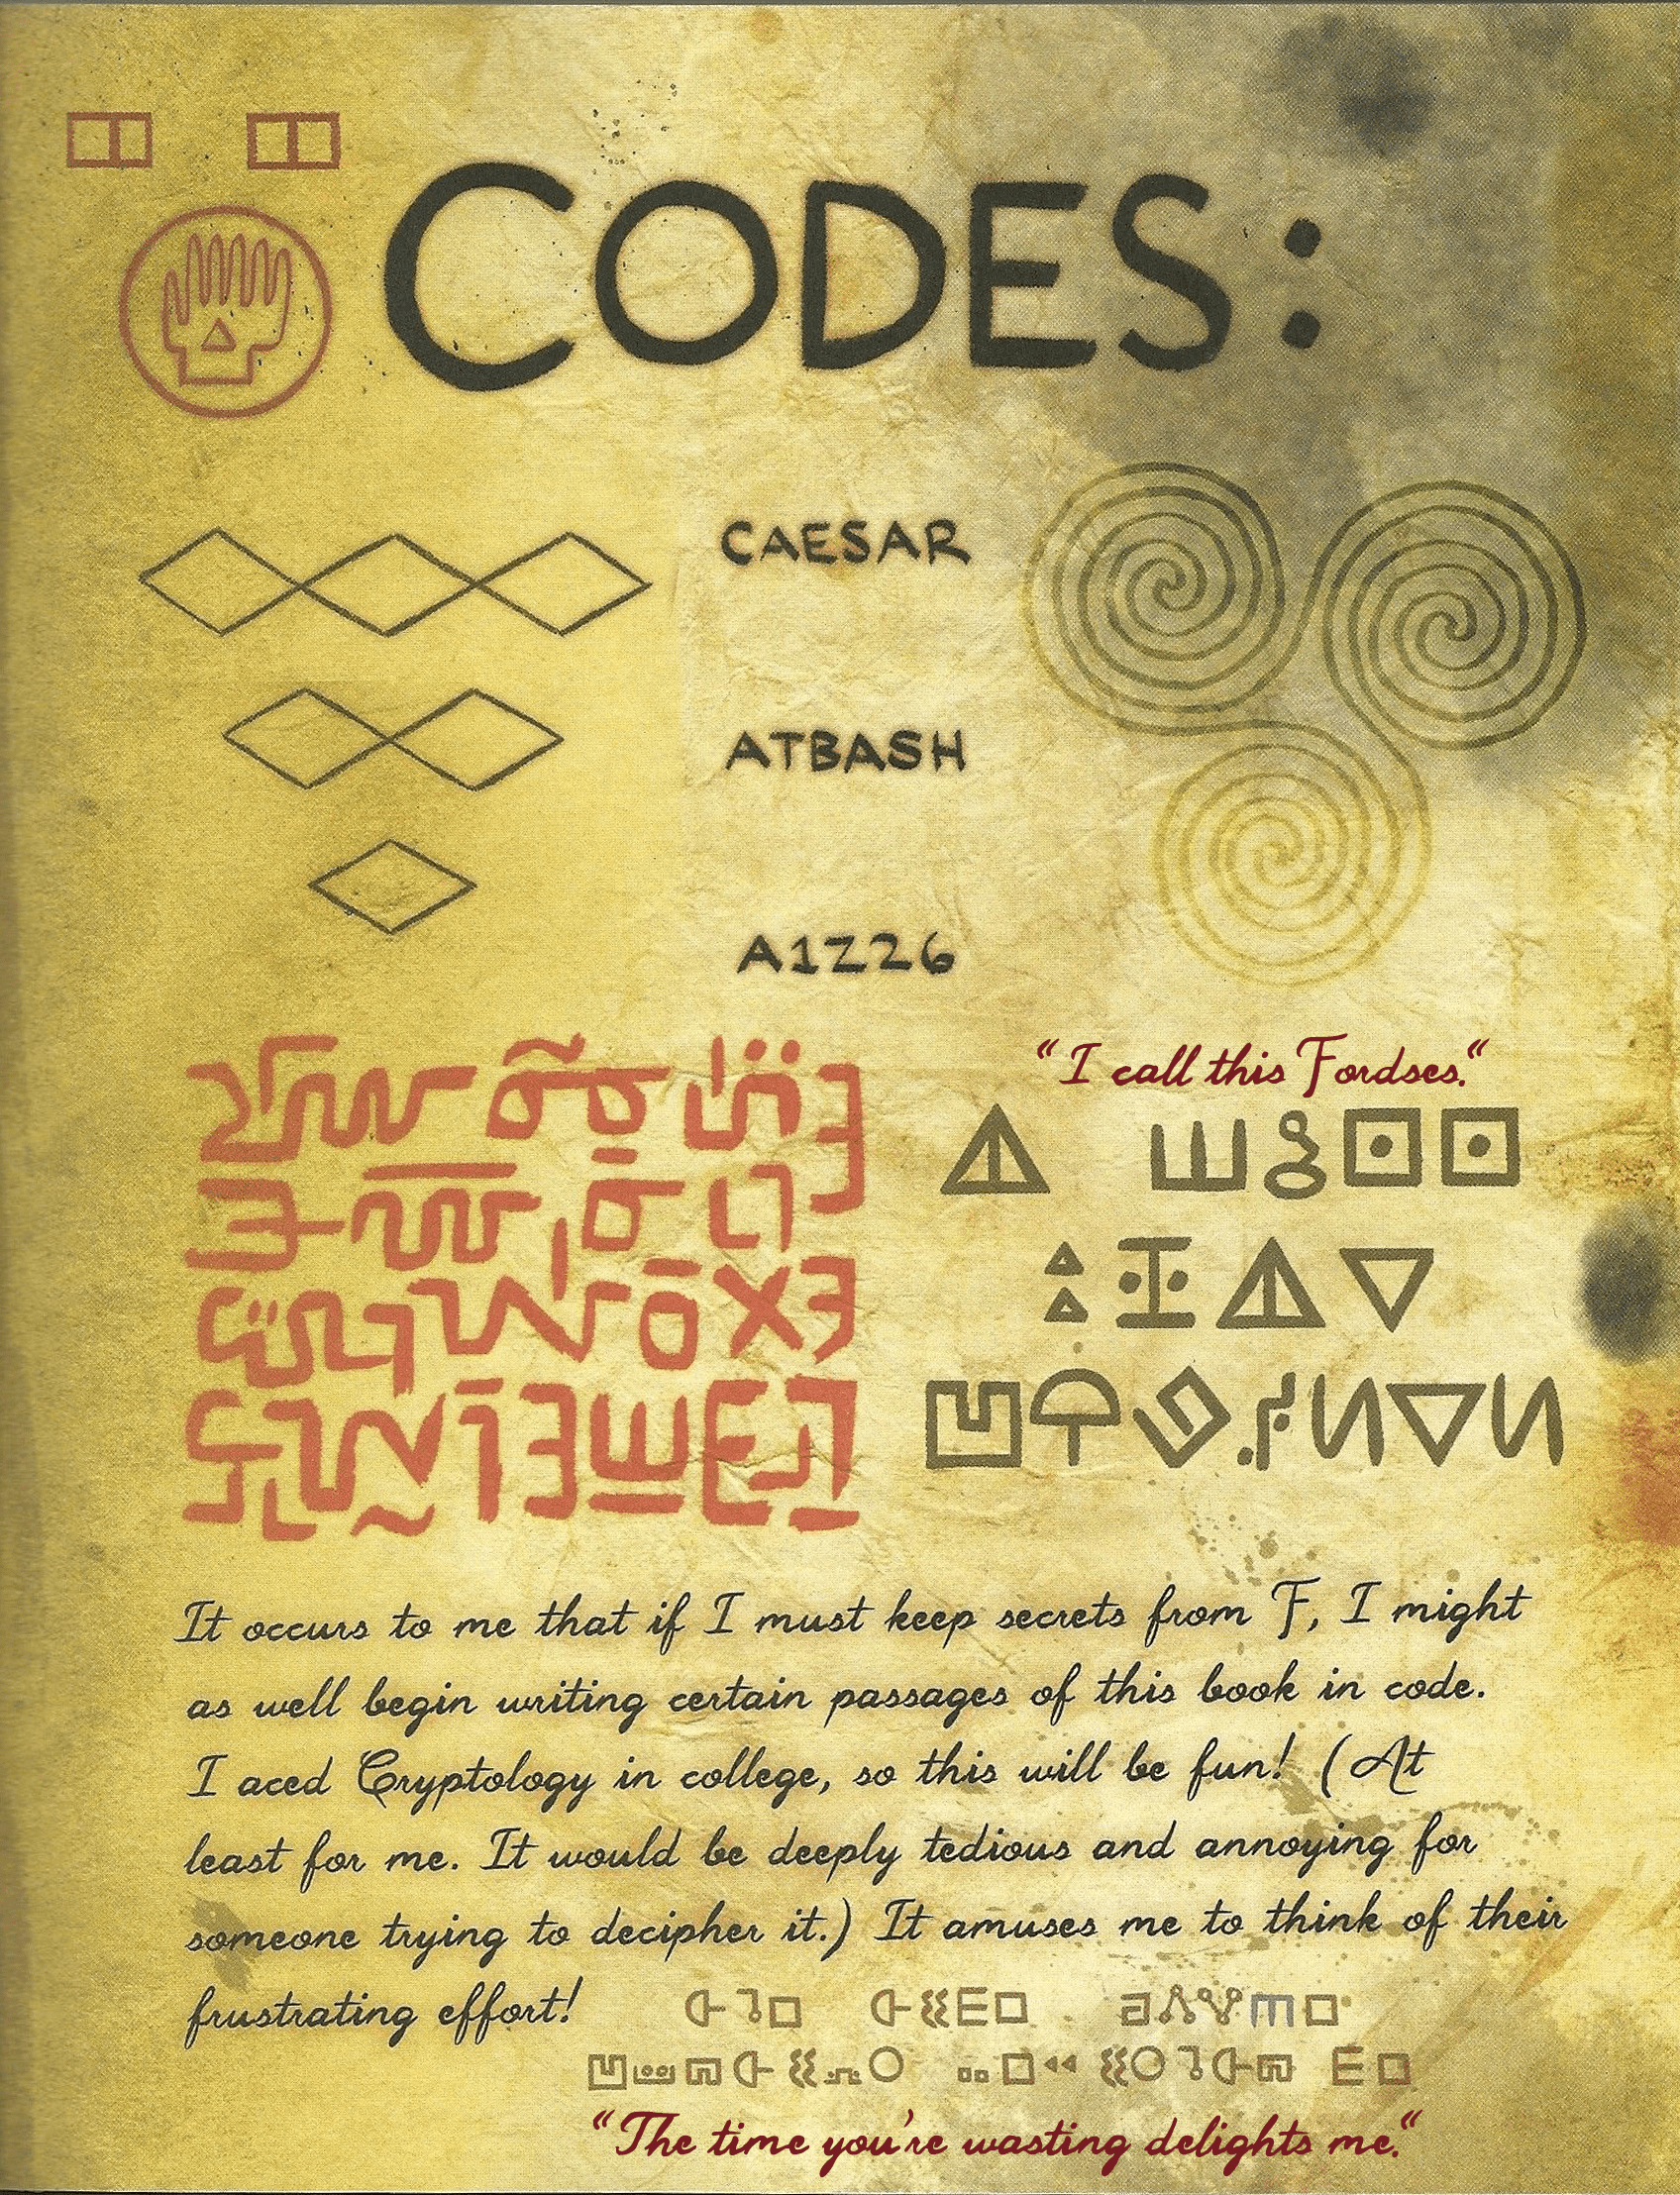 CODES:
CAESAR
ATBASH
A1Z26
“I call this Fordses.“
It occurs to me that if I must keep secrets from F, I might
as well begin writing certain passages of this book in code.
I aced Cryptology in college, so this will be fun! (At
least for me. It would be deeply tedious and annoying for
someone trying to decipher it.) It amuses me to think of their
frustrating effort!
“The time you're wasting delights me.“